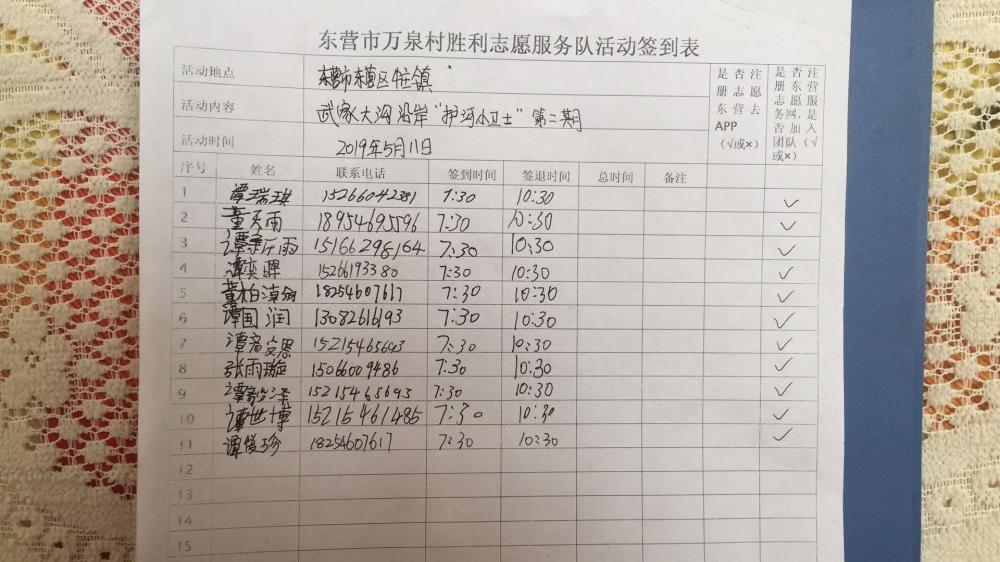 东营市万泉村胜利志愿服务队活动签到表
活动地点 东营市东营区牛庄镇
是否注册志愿东营去APP（√或×）
是否注册东营志愿服务网，是否加入团队（√或×）
活动内容 武家大沟沿岸“护河小卫士”第二期
活动时间 2019年5月11日
序号 姓名 联系电话 签到时间 签退时间 总时间 备注
1 谭瑞琪 15266042381 7:30 10:30 ✓
2 董天雨 18954695596 7:30 10:30 ✓
3 雨 15166298164 7:30 10:30 ✓
4 谭奕 15266193380 7:30 10:30 ✓
5 18254607617 7:30 10:30 ✓
6 谭国润 13082616193 7:30 10:30 ✓
7 谭 恩 15215465693 7:30 10:30 ✓
8 张雨璇 15066009486 7:30 10:30 ✓
9 谭 泽 15215465693 7:30 10:30 ✓
10 谭世博 15215461485 7:30 10:30 ✓
11 谭俊珍 18254607617 7:30 10:30 ✓
12
13
14
15